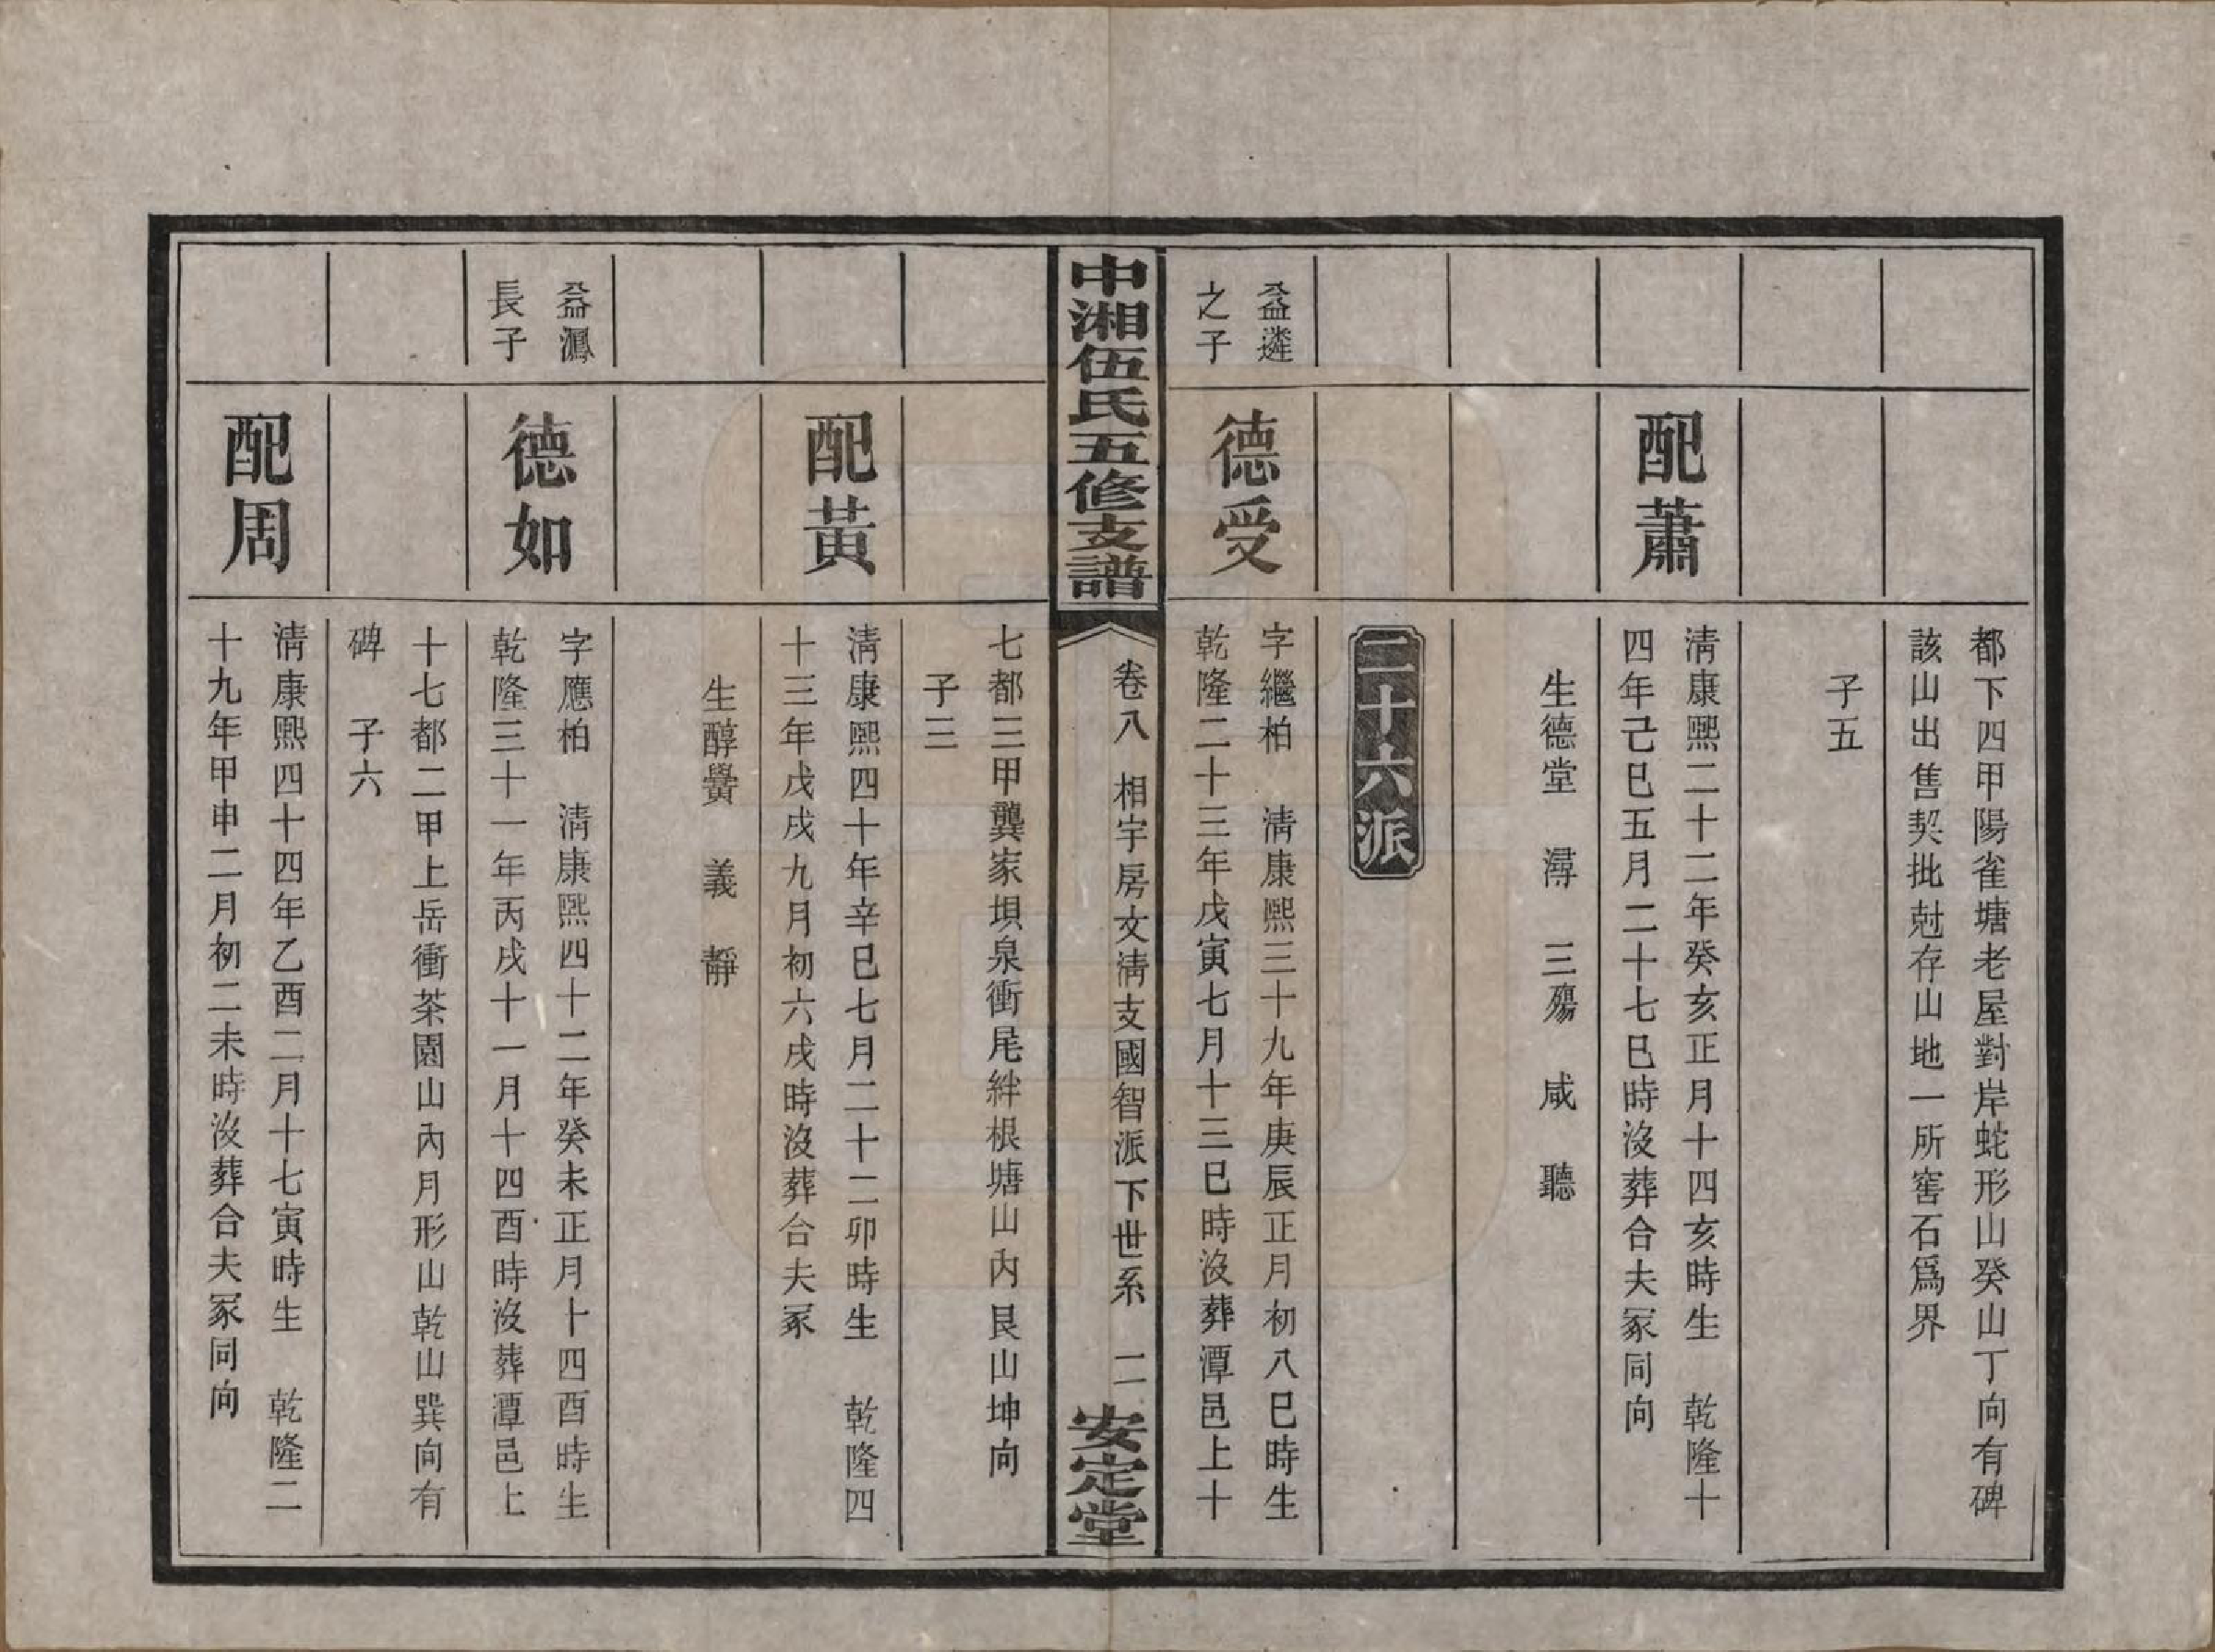 都下四甲陽雀塘老屋對岸蛇形山癸山丁向有碑
該山出售契批尅存山地一所窖石爲界
子五
配蕭
清康熙二十二年癸亥正月十四亥時生　乾隆十
四年己巳五月二十七巳時沒葬合夫冢同向
生德堂　潯　三殤　咸　聽
二十六派
益遴
之子
德受
字繼柏　清康熙三十九年庚辰正月初八巳時生
乾隆二十三年戊寅七月十三巳時沒葬潭邑上十
中湘伍氏五修支譜
卷八　相宇房文清支國智派下世系　二
安定堂
七都三甲龔家壩泉衝尾絆根塘山內艮山坤向
子三
配黃
清康熙四十年辛巳七月二十二卯時生　乾隆四
十三年戊戌九月初六戌時沒葬合夫冢
生醇黌　義　靜
益灊
長子
德如
字應柏　清康熙四十二年癸未正月十四酉時生
乾隆三十一年丙戌十一月十四酉時沒葬潭邑上
十七都二甲上岳衝茶園山內月形山乾山巽向有
碑　子六
配周
清康熙四十四年乙酉二月十七寅時生　乾隆二
十九年甲申二月初二未時沒葬合夫冢同向